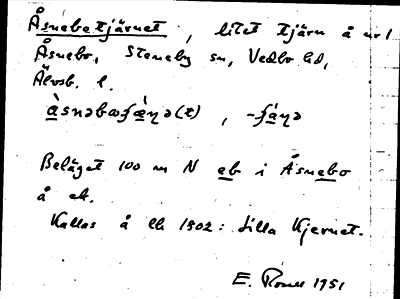 Åsnebotjärnet, litet tjärn å nr 1
Åsnebo, Steneby sn, Vedbo hd,
Älvsb. l.
Beläget 100 m N eb i Åsnebo
å ek.
Kallas å lk 1802: Lilla Kjernet.
E. Rosell 1951